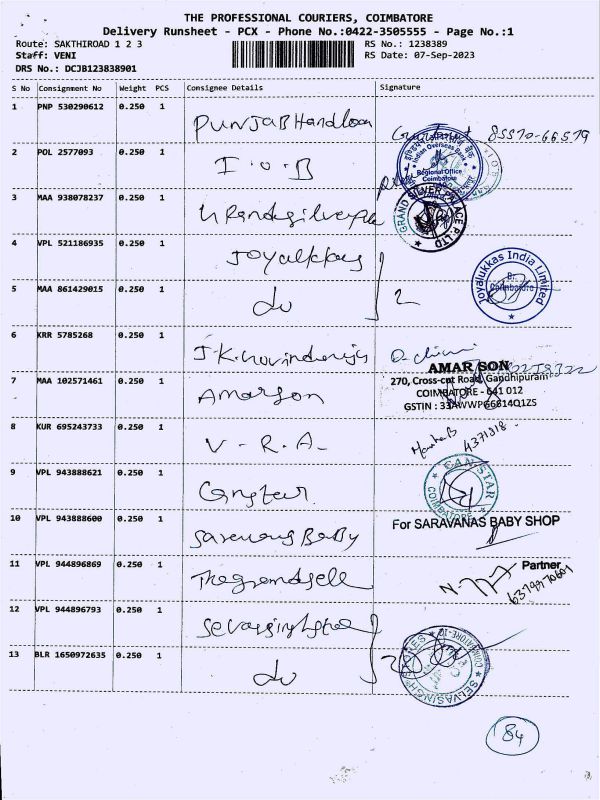 THE PROFESSIONAL COURIERS, COIMBATORE
Delivery Runsheet - PCX - Phone No.:0422-3505555 - Page No.:1
Route: SAKTHIROAD 1 2 3 RS No.: 1238389
Staff: VENI RS Date: 07-Sep-2023
DRS No.: DCJB123838901
S No Consignment No Weight PCS Consignee Details Signature
1 PNP 530290612 0.250 1
PUNJAB Handloom 85570-66579
2 POL 2577093 0.250 1
I.O.B
Indian Overseas Bank
Regional Office
Coimbatore
3 MAA 938078237 0.250 1
GRAND SILVER PALACE P. LTD
4 VPL 521186935 0.250 1
Joyalukkas
5 MAA 861429015 0.250 1
do 2
Joyalukkas India Limited
Br.
Coimbatore
6 KRR 5785268 0.250 1
7 MAA 102571461 0.250 1
Amarson
AMAR SON
270, Cross-cut Road, Gandhipuram
COIMBATORE - 641 012
GSTIN : 33AWWPG6814Q1ZS
8 KUR 695243733 0.250 1
V - R. A - 4371318
9 VPL 943888621 0.250 1
CAMSTAR
COIMBATORE
10 VPL 943888600 0.250 1
Saravanas Baby
For SARAVANAS BABY SHOP
Partner
11 VPL 944896869 0.250 1
12 VPL 944896793 0.250 1
13 BLR 1650972635 0.250 1
do 2
84